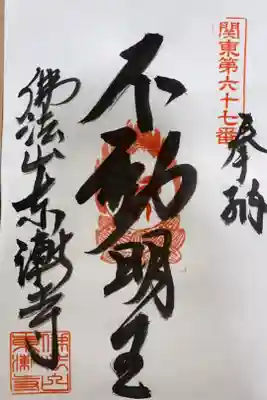 関東第六十七番
奉納
不動明王
佛法山東漸寺